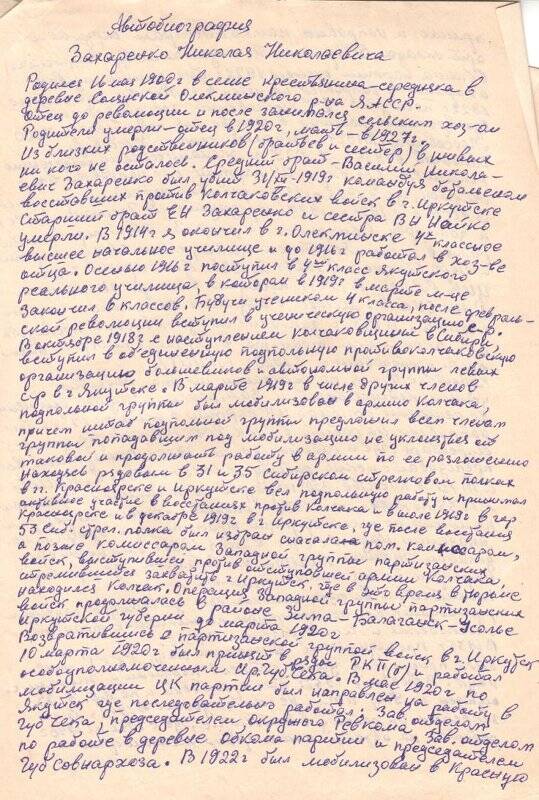 Автобиография
Захаренко Николая Николаевича
Родился 16 мая 1900г в семье крестьянина-середняка в
деревне Солянской Олекминского р-на ЯАССР.
Отец до революции и после занимался сельским хоз-ом
Родители умерли-отец в 1920г, мать-в 1927г.
Из близких родственников (братьев и сестер) в живых
ни кого не осталось. Средний брат-Василий Никола-
евич Захаренко был убит 31/XII-1919г командуя батальеном
восставших против Колчаковских войск в г. Иркутске
Старший брат ЕН Захаренко и сестра ВН Найко
умерли. В 1914г я окончил в г. Олекминске 4х классное
высшее начальное училище и до 1916г работал в хоз-ве
отца. Осенью 1916г поступил в 4ый класс Якутского
реального училища, в котором в 1919г в марте м-це
закончил 6 классов. Будучи учеником 4 класса, после февраль-
ской революции вступил в ученическую организацию с-р.
В октябре 1918г с наступлением колчаковщины в Сибири,
вступил в объединенную подпольную противоколчаковскую
организацию большевиков и автономной группы левых
с-р в г Якутске. В марте 1919г в числе других членов
подпольной группы был мобилизован в армию Колчака,
причем штаб подпольной группы предложил всем членам
группы попадавшим под мобилизацию не уклоняться от
таковой и продолжать работу в армии по ее разложению
Находясь рядовым в 31 и 35 Сибирском стрелковом полках
в гг. Красноярске и Иркутске вел подпольную работу и принимал
активное участие в восстаниях против Колчака в июле 1919г в гор
Красноярске и в декабре 1919г в г Иркутске, где после восстания
53 Сиб. стрел. полка был избран сначала пом. комиссаром,
а позже комиссаром Западной группы партизанских
войск, выступившей против отступившей армии Колчака,
стремившейся захватить г Иркутск, где в это время в тюрьме
находился Колчак. Операция Западной группы партизанских
войск продолжалась в районе Зима-Балаганск-Усолье
Иркутской губернии до марта 1920г
Возвратившись с партизанской группой войск в г. Иркутск
10 марта 1920г был принят в ряды РКП(б) и работал
особоуполномоченным Ир.Губ.Чека. В мае 1920г по
мобилизации ЦК партии был направлен на работу в
Якутск где последовательно работал: Зав. отделом
Губ Чека, председателем окружного Ревкома, Зав. отделом
по работе в деревне обкома партии и председателем
Губ Совнархоза. В 1922г был мобилизован в Красную